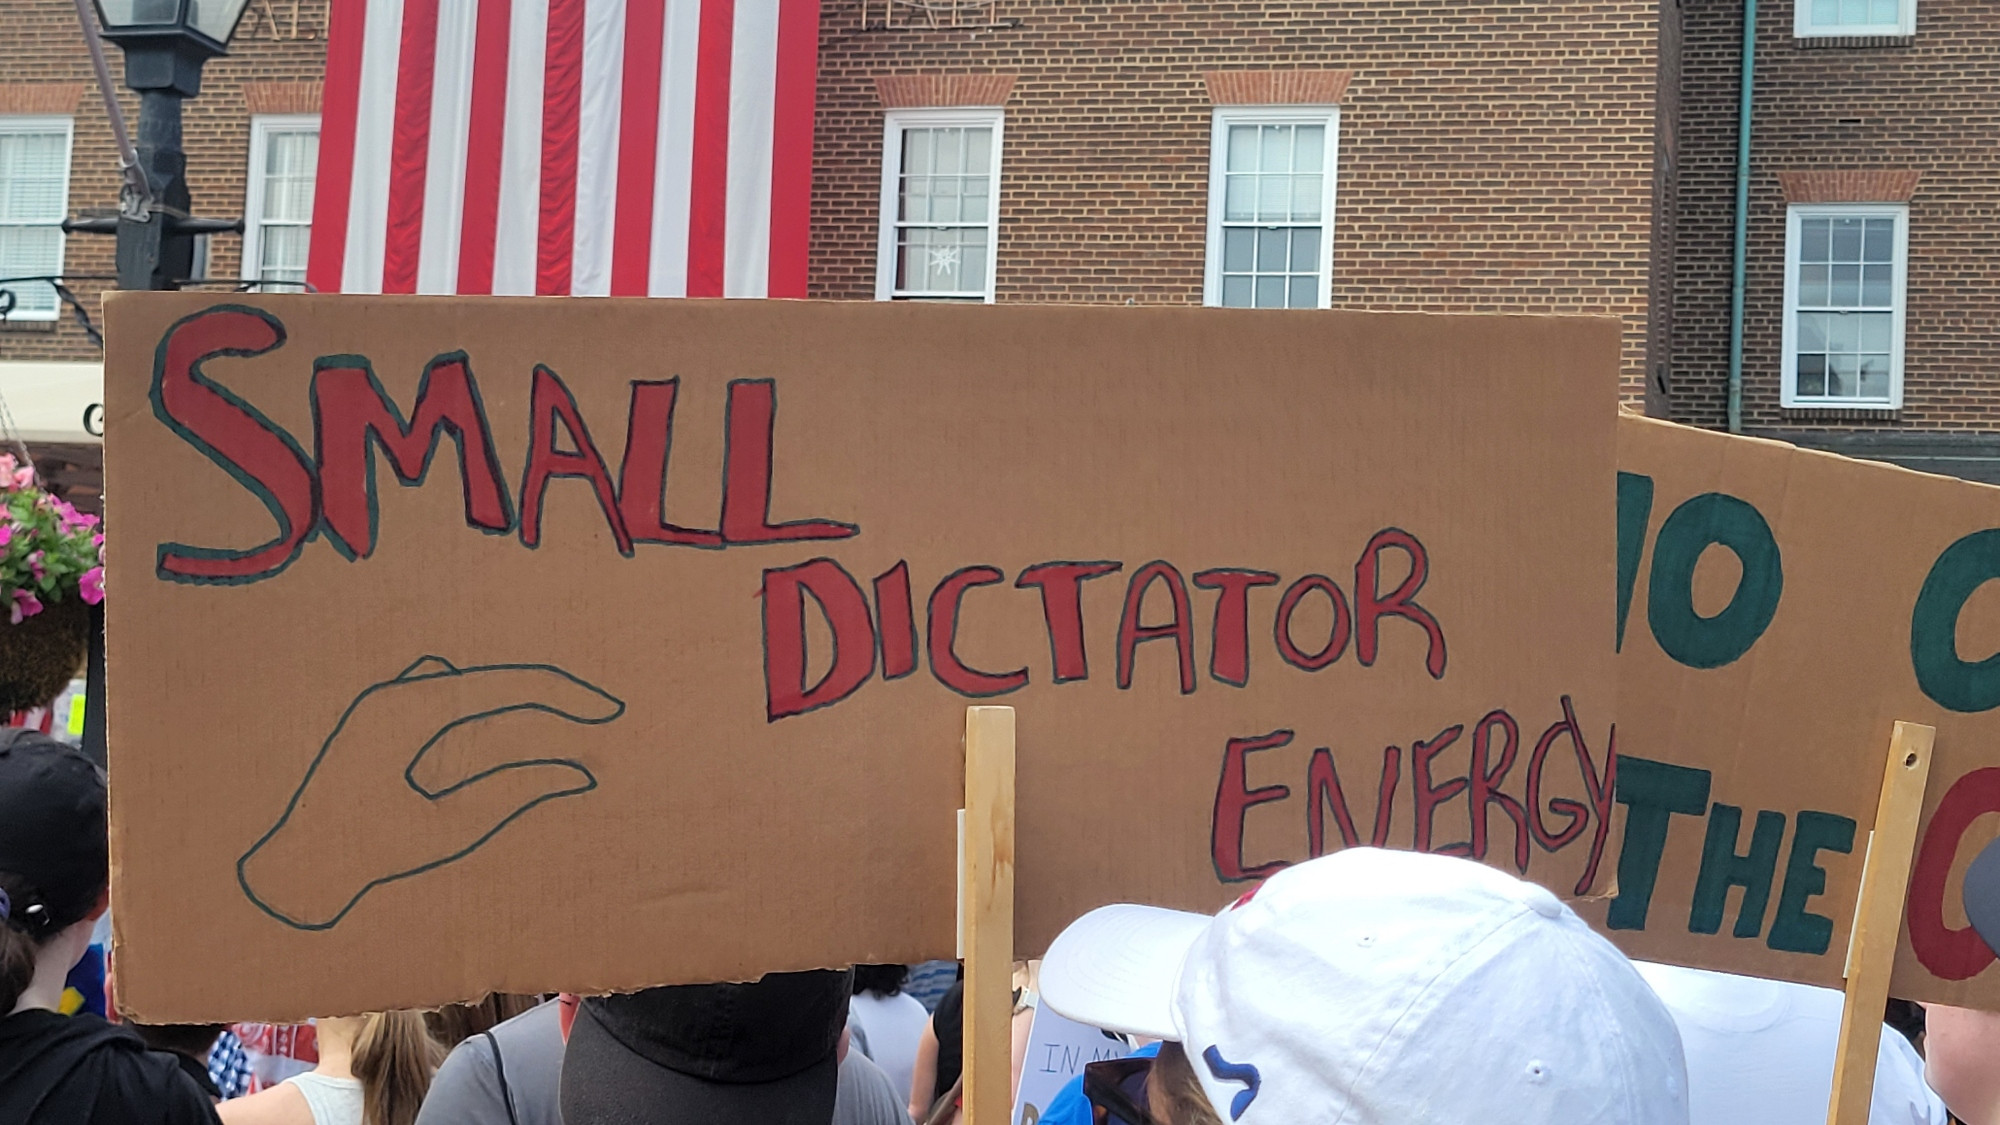 SMALL
DICTATOR
ENERGY
THE
IN MY